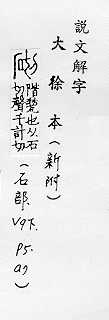 説文解字
大徐本(新附)
砌
階甃也从石
切聲千計切
(石部.V9下.
P5.a9)